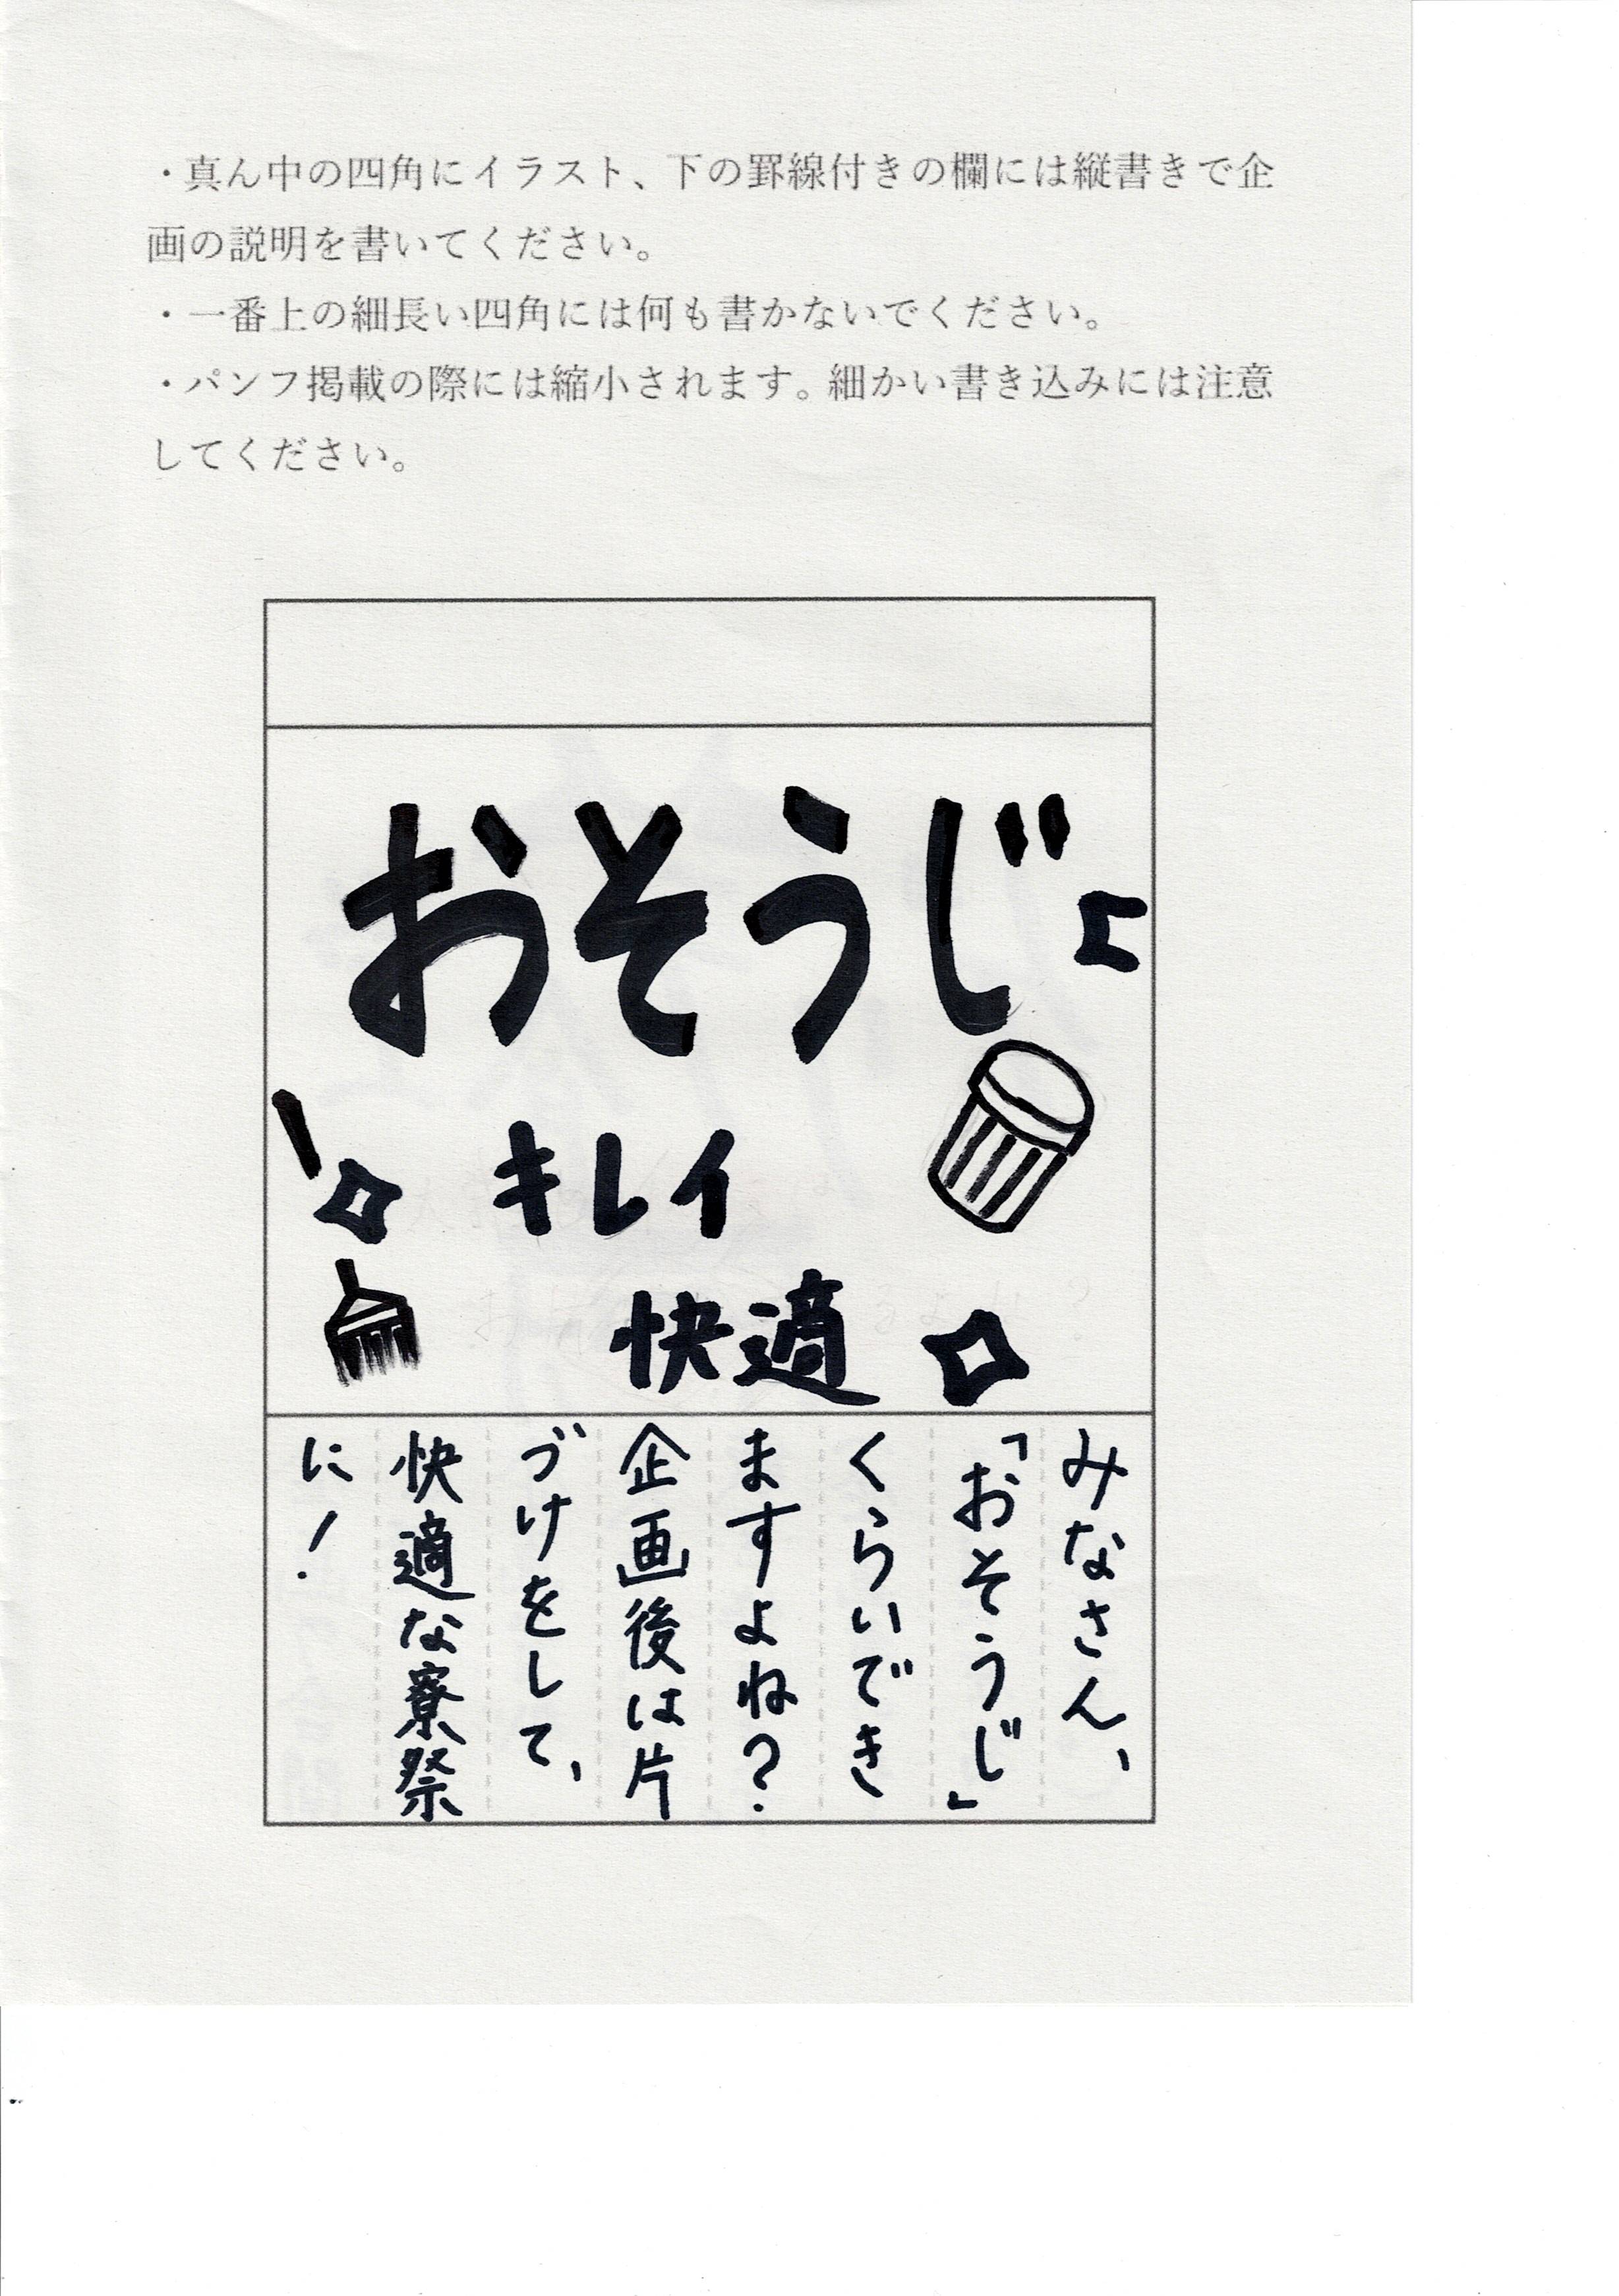 ・真ん中の四角にイラスト、下の罫線付きの欄には縦書きで企
画の説明を書いてください。
・一番上の細長い四角には何も書かないでください。
・パンフ掲載の際には縮小されます。細かい書き込みには注意
してください。
おそうじ
キレイ
快適
みなさん、
「おそうじ」
くらいでき
ますよね？
企画後は片
づけをして、
快適な寮祭
に！